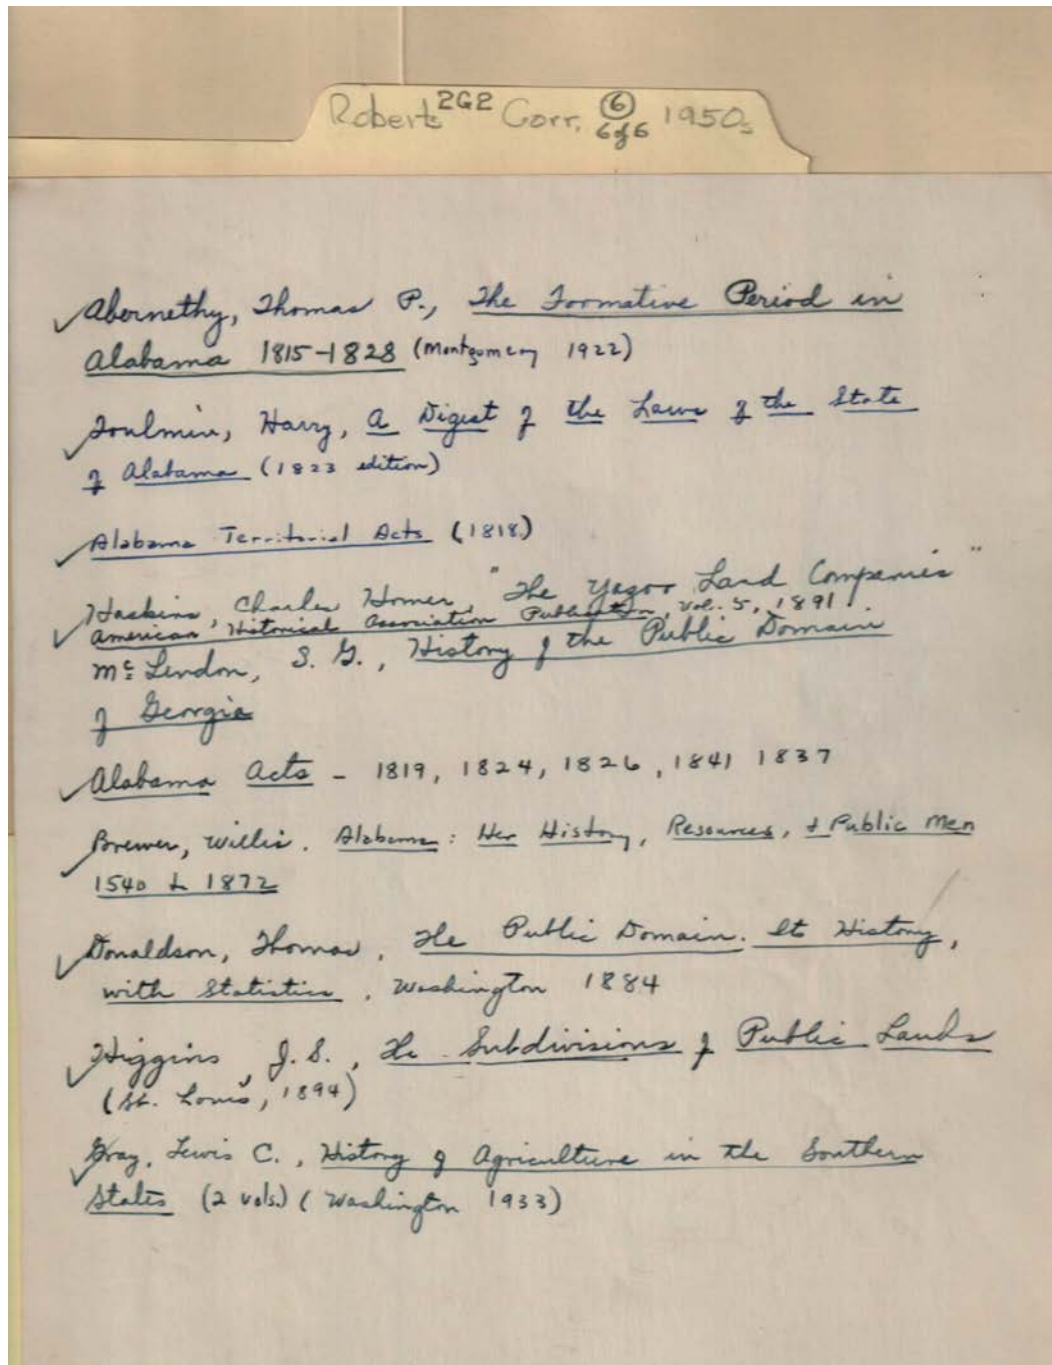 Roberts 2G2 Corr. 6 6 of 6 1950s
Abernethy, Thomas P., The Formative Period in
Alabama 1815-1828 (Montgomery 1922)
Toulmin, Harry, A Digest of the Laws of the State
of Alabama (1823 edition)
Alabama Territorial Acts (1818)
Haskins, Charles Homer, "The Yazoo Land Companies"
American Historical Association Publication, Vol. 5, 1891.
McLendon, S. G., History of the Public Domain
of Georgia
Alabama Acts - 1819, 1824, 1826, 1841 1837
Brewer, Willis. Alabama: Her History, Resources, + Public Men
1540 to 1872
Donaldson, Thomas, The Public Domain. Its History,
with Statistics, Washington 1884
Higgins, J. S., The Subdivisions of Public Lands
(St. Louis, 1894)
Gray, Lewis C., History of Agriculture in the Southern
States (2 vols.) (Washington 1933)